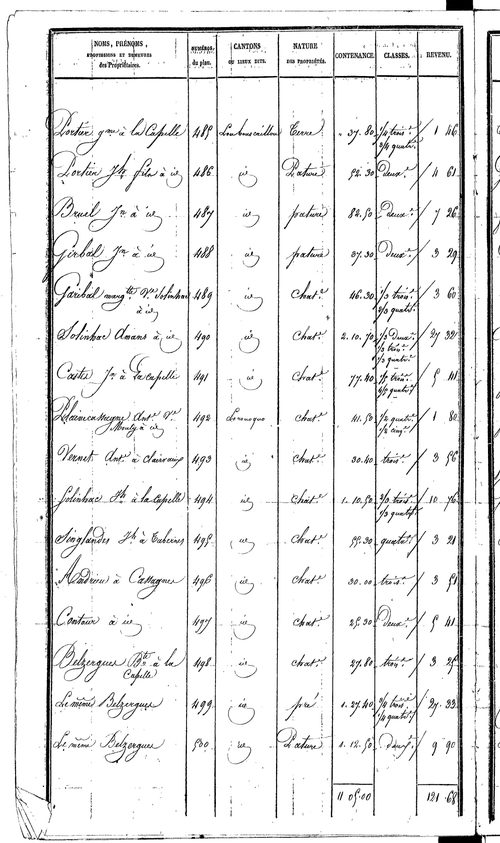 NOMS, PRÉNOMS, PROFESSIONS ET DEMEURES des Propriétaires. NUMÉROS du plan. CANTONS OU LIEUX DITS. NATURE DES PROPRIÉTÉS. CONTENANCE. CLASSES. REVENU.
Portier gme à la Capelle 485 Terre 37.80 1/4 trois. 3/4 quatr. 1 46
Portier Jh fils à id 486 id Pature 52.30 Deux. 4 61
Bruel Jn à id 487 id pature 82.50 Deux. 7 26
Girbal Jn à id 488 id pature 37.30 Deux. 3 29
Garibal margtte Ve Solinhac à id 489 id chat. 46.30 1/3 trois. 2/3 quatr. 3 60
Solinhac Amans à id 490 id Chat. 2.10.70 1/3 Deux. 1/3 trois. 1/3 quatr. 27 32
Castes Jn à la Capelle 491 id chat. 77.40 trois. quatr. 5 41
Antne Ve à id 492 chat. 41.50 1/2 quatr. 1/2 cinq. 1 80
Vernet Ant. à Clairvaux 493 id chat. 30.40 trois. 3 56
Solinhac Jh à la Capelle 494 id chat. 1.10.50 2/3 trois. 1/3 quatr. 10 76
Singlandes Jh à Tubernes 495 id chat. 55.30 quatr. 3 21
Madrieu à Cassagnes 496 id chat. 30.00 trois. 3 51
Contour à id 497 id chat. 25.30 Deux. 5 41
Belzergues Bte à la Capelle 498 id chat. 27.80 trois. 3 25
Le même Belzergues 499 id pré 1.27.40 3/4 trois. 1/4 quatr. 27 33
Le même Belzergues 500 id Pature 1.12.50 deux. 9 90
11 05.00 121.68